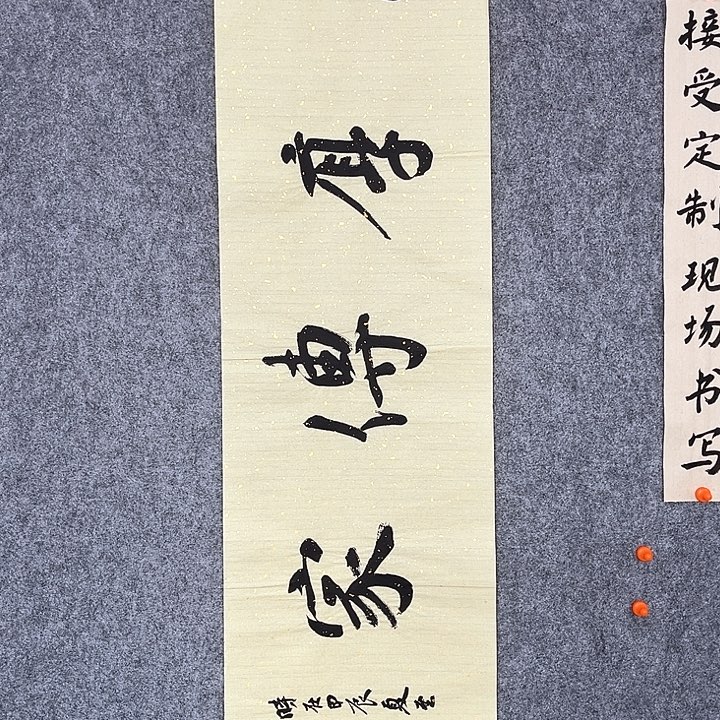 厚傳家
時在甲辰夏至
接受定制现场书写